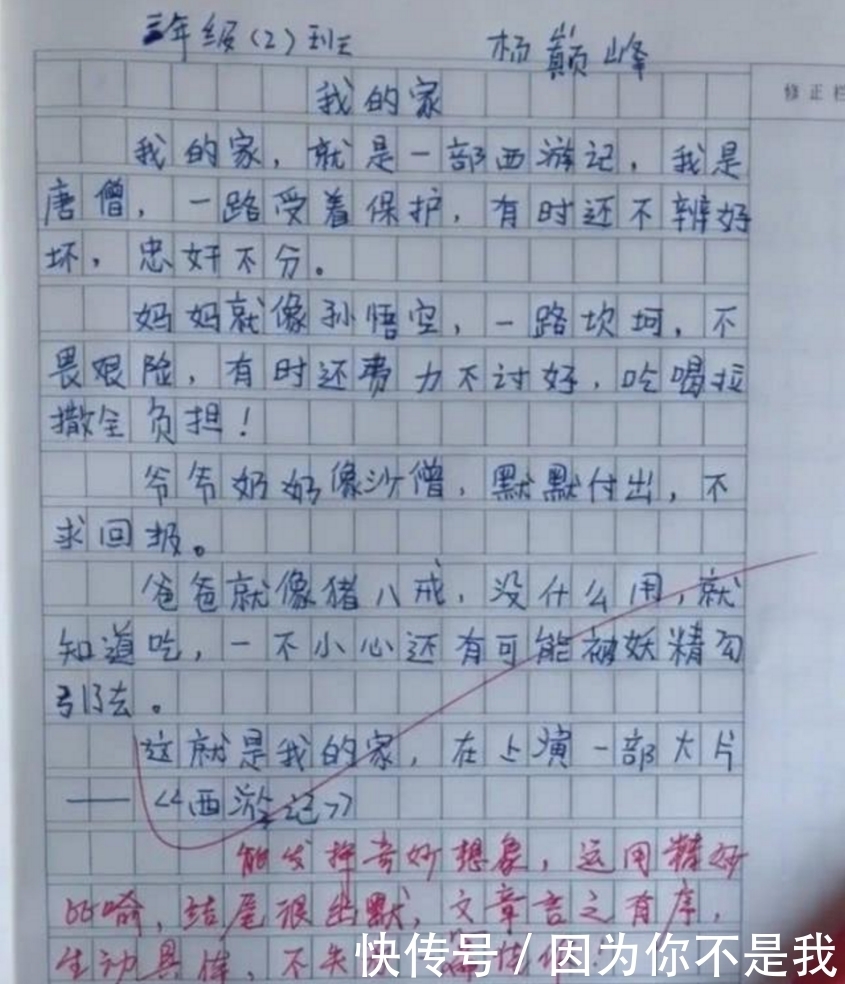 三年级(2)班 杨巅峰
修正栏
我的家
我的家,就是一部西游记,我是
唐僧,一路受着保护,有时还不辨好
坏,忠奸不分。
妈妈就像孙悟空,一路坎坷,不
畏艰险,有时还费力不讨好,吃喝拉
撒全负担!
爷爷奶奶像沙僧,默默付出,不
求回报。
爸爸就像猪八戒,没什么用,就
知道吃,一不小心还有可能被妖精勾
引去。
这就是我的家,在上演一部大片
——《西游记》
能发挥奇妙想象,运用精妙
比喻,结尾很幽默,文章言之有序,
生动具体,不失
快传号/因为你不是我